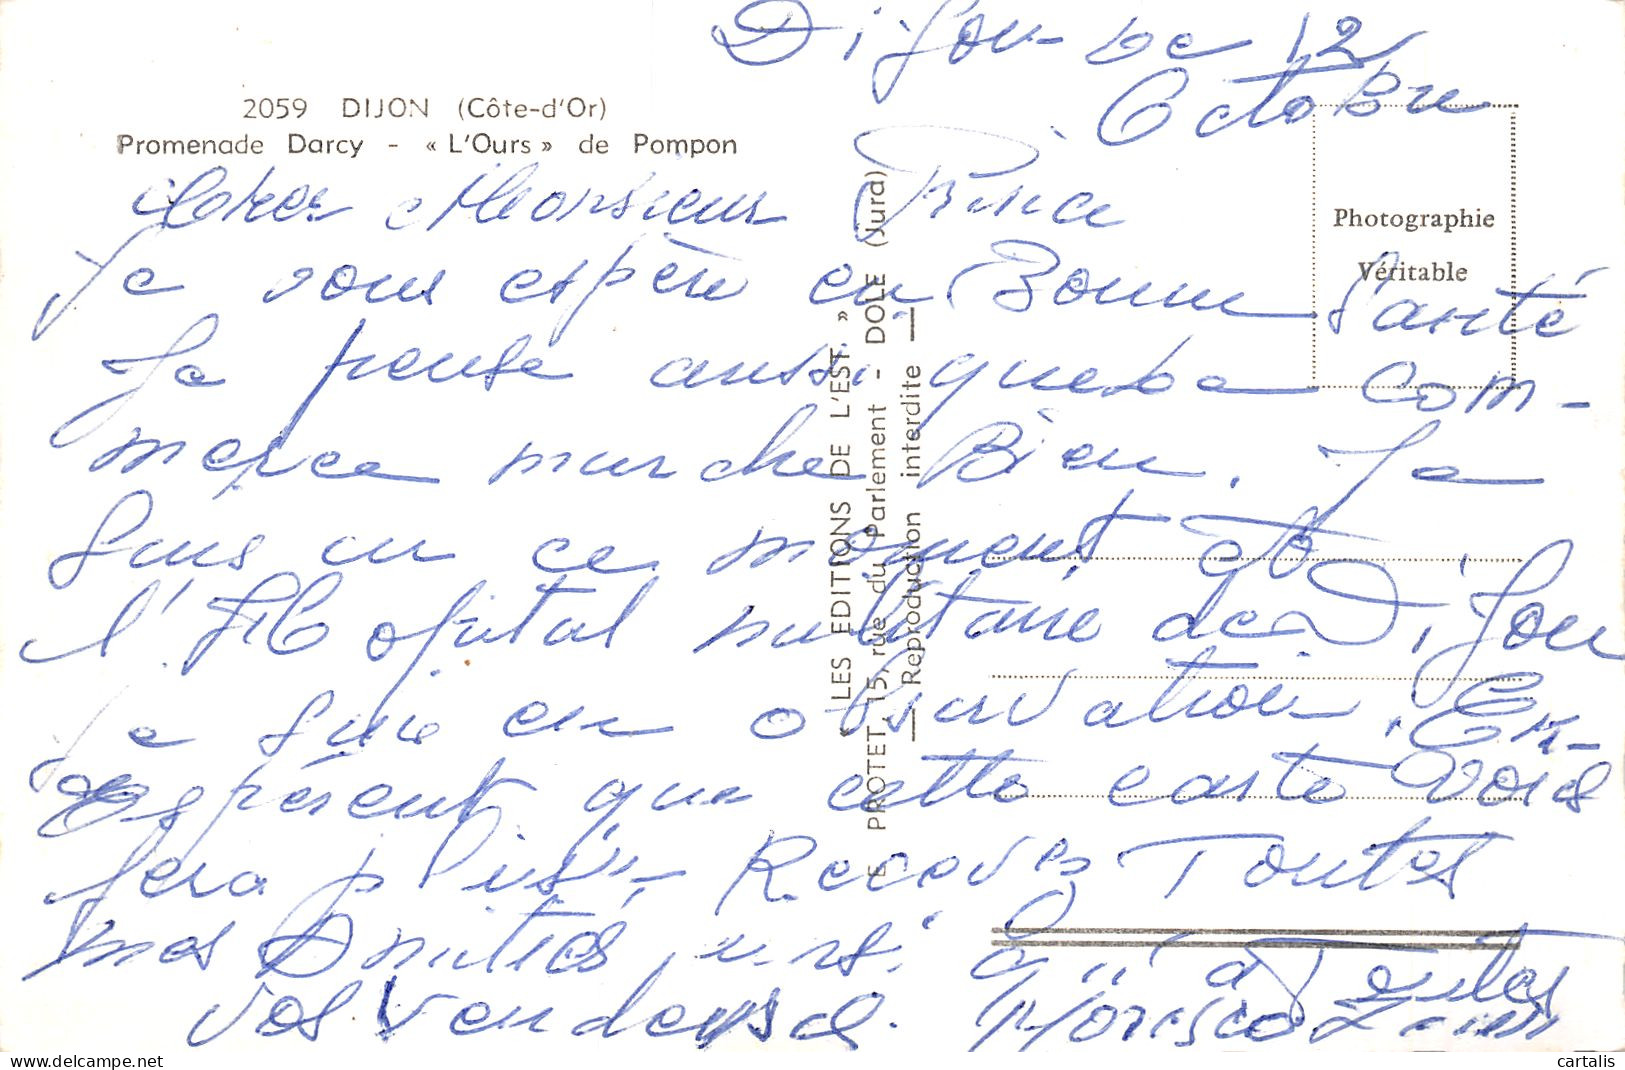 Dijon le 12
Octobre
2059 DIJON (Côte-d'Or)
Promenade Darcy - « L'Ours » de Pompon
Cher Monsieur
Je vous espère en Bonne Santé
Je pense aussi que le com-
merce marche Bien. Je
suis en ce moment à
l'Hopital militaire de Dijon
Je suis en observation. En-
Espérent que cette carte vous
sera plaisir, Recevés Toutes
mes Amitiés, à Toutes
vos vendeuses.
Photographie
Véritable
« LES EDITIONS DE L'EST »
E. PROTET, 15, rue du Parlement - DOLE (Jura)
— Reproduction interdite —
delcampe.net
cartalis